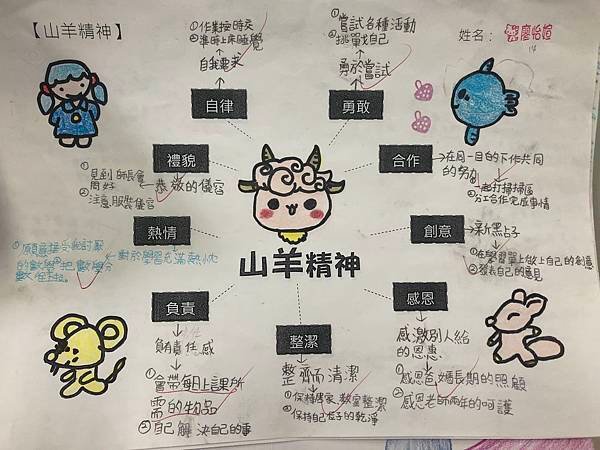 【山羊精神】
姓名：廖怡愃
14
①作業按時交
②準時上床睡覺
自我要求
自律
①嘗試各種活動
②挑戰自己
勇於嘗試
勇敢
禮貌
恭敬的儀容
①見到師長會
問好
②注意服裝儀容
合作
在同一目的下作共同
的努力
①一起打掃掃區
②分工合作完成事情
熱情
對於學習充滿熱忱
①願意接
的數學
創意
新點子
①在學習單上做上自己的創意
②發表自己的意見
山羊精神
負責
負責任感
①會帶每日上課所
需的物品
②自己解決自己的事
整潔
整齊而清潔
①保持居家、教室整潔
②保持自己位子的乾淨
感恩
感激別人給
的恩惠
①感恩爸媽長期的照顧
②感恩老師兩年的呵護